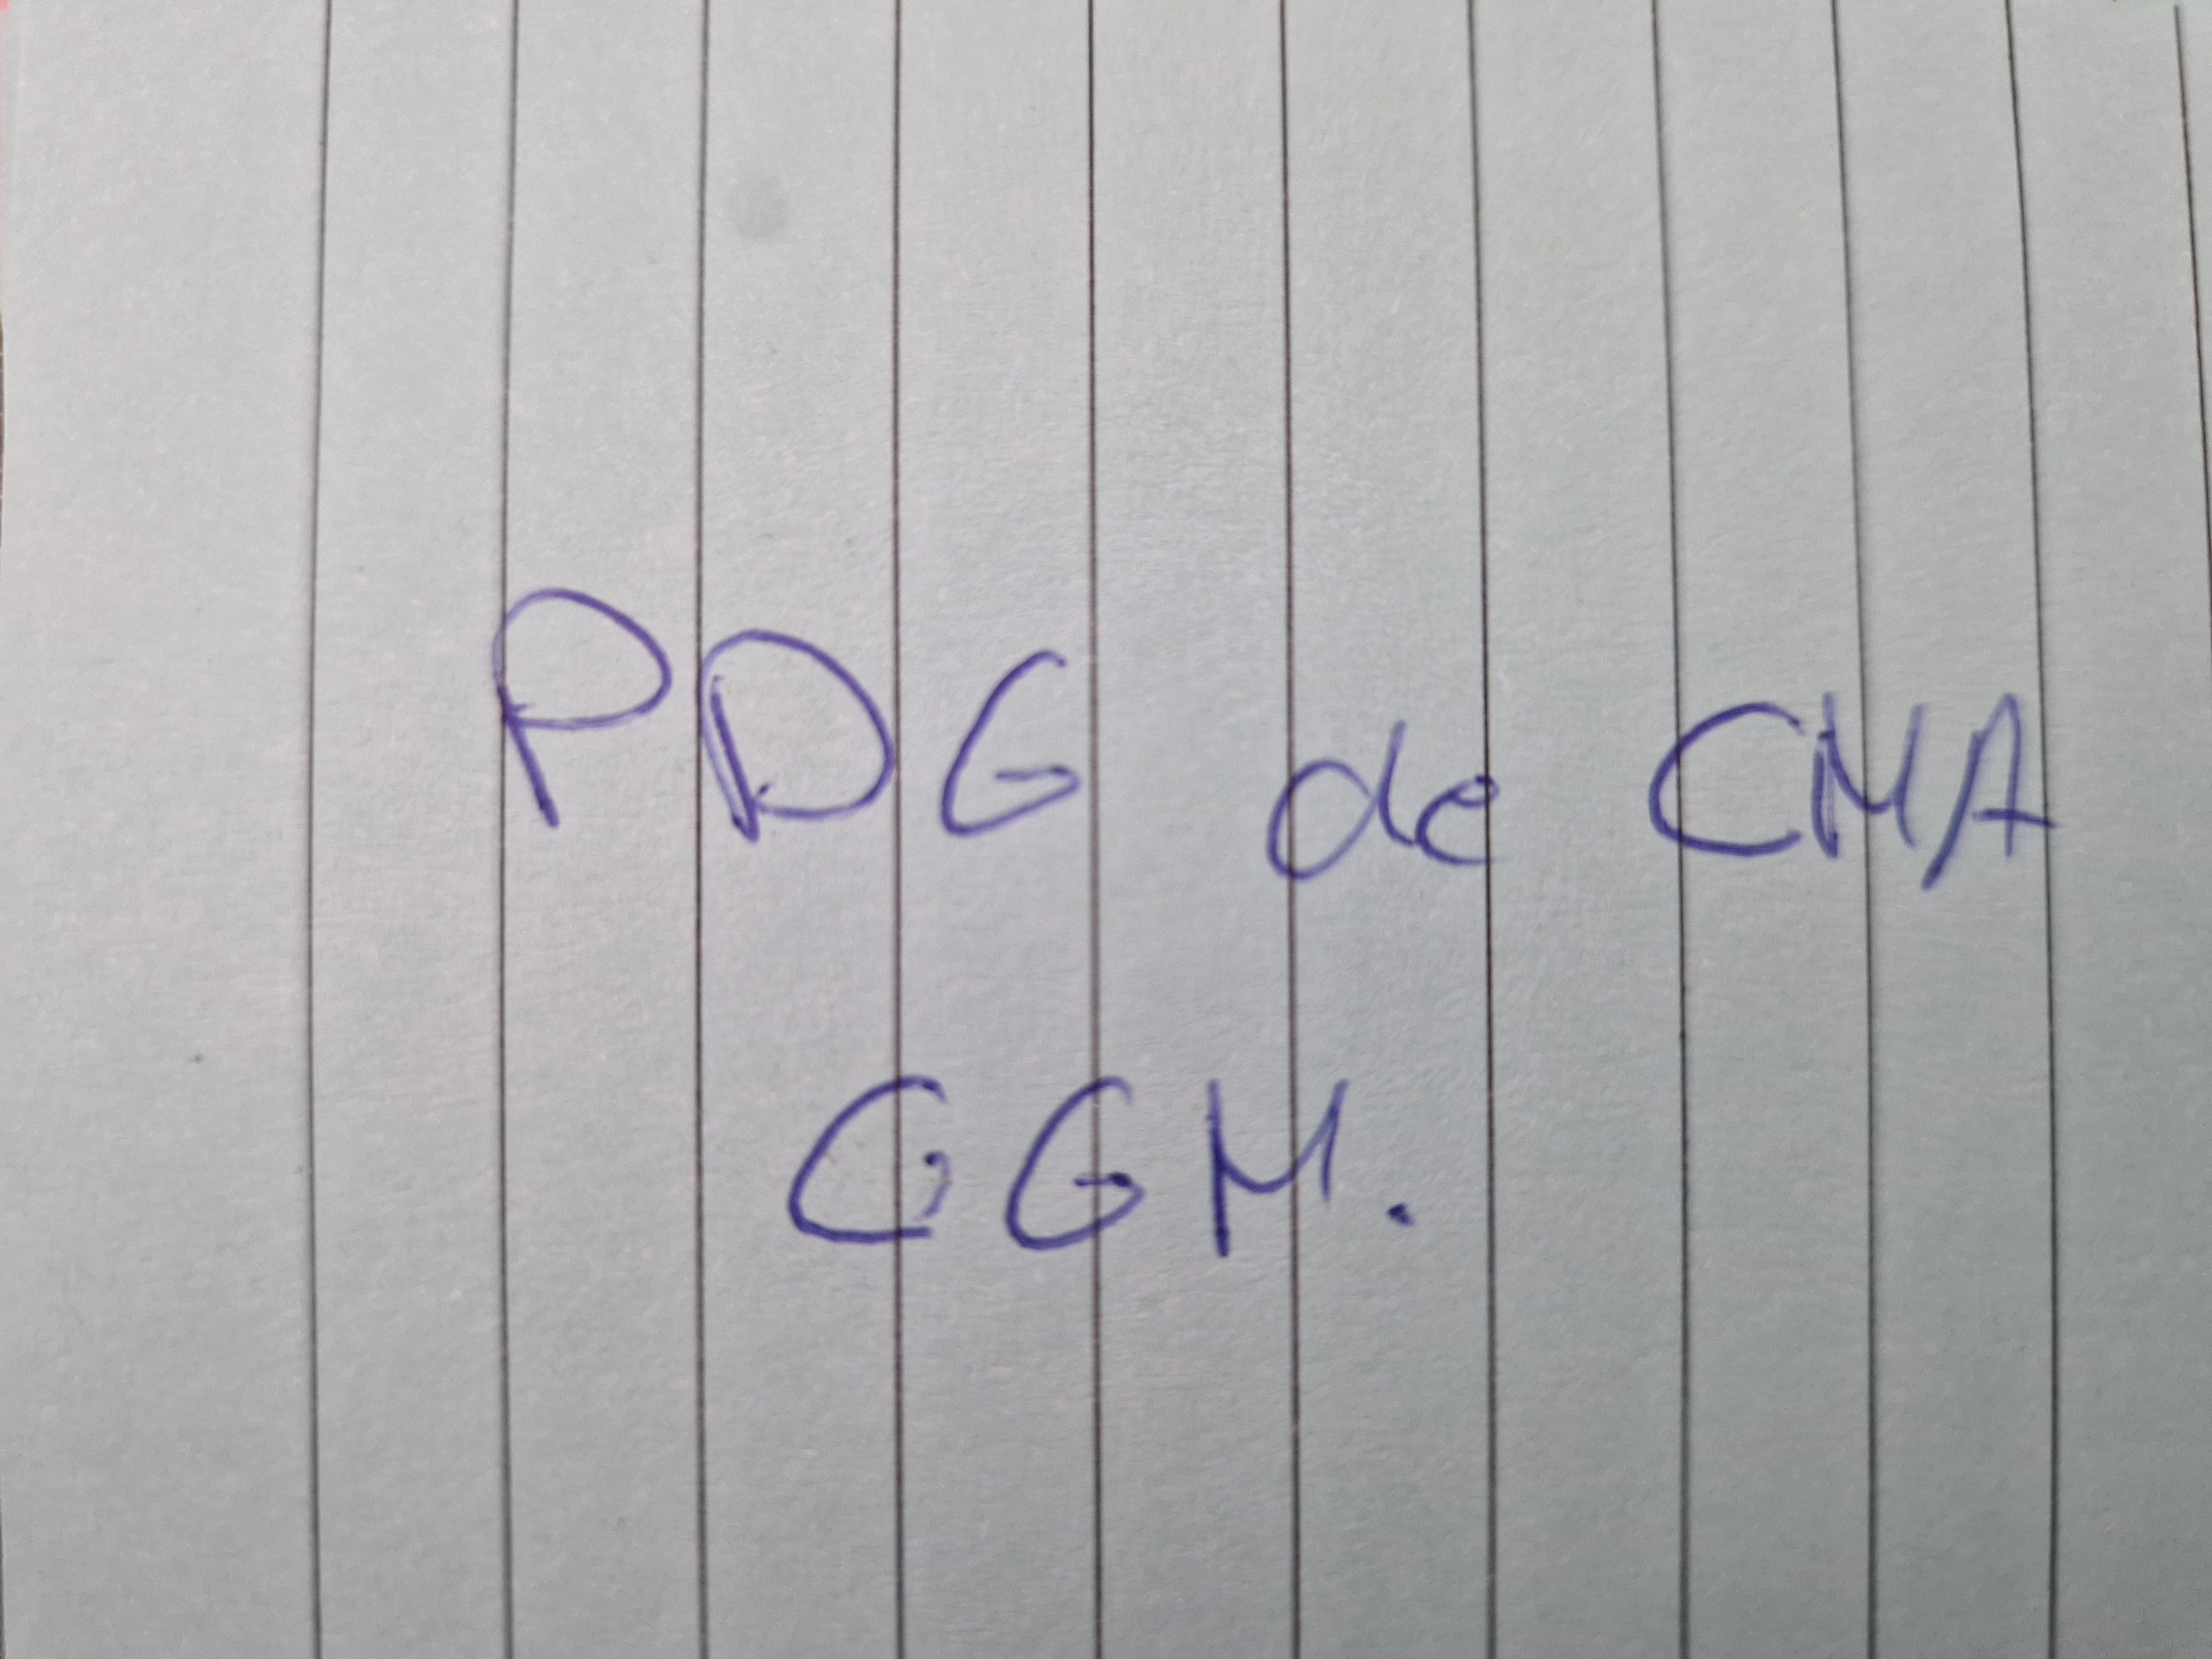 PDG de CMA
GGM.